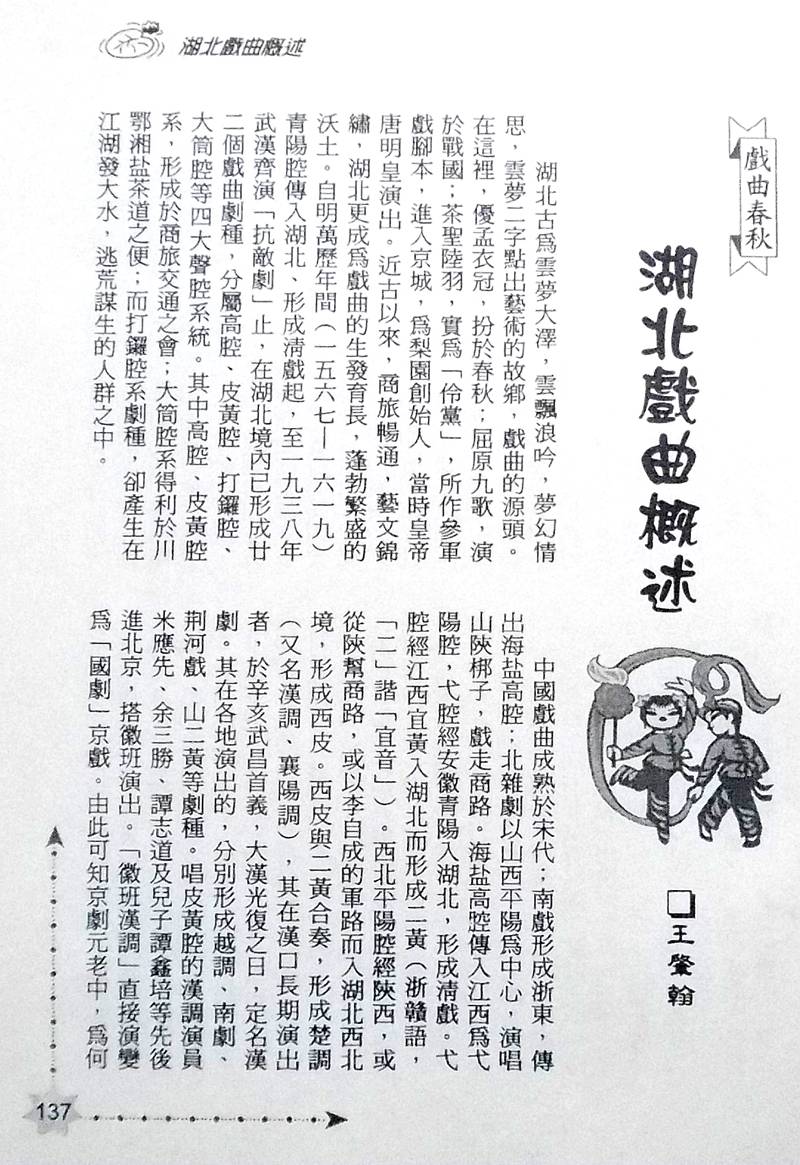 湖北戲曲概述
戲曲春秋
湖北戲曲概述
□王肇翰
湖北古爲雲夢大澤，雲飄浪吟，夢幻情
思，雲夢二字點出藝術的故鄉，戲曲的源頭。
在這裡，優孟衣冠，扮於春秋；屈原九歌，演
於戰國；茶聖陸羽，實爲「伶黨」，所作參軍
戲腳本，進入京城，爲梨園創始人，當時皇帝
唐明皇演出。近古以來，商旅暢通，藝文錦
繡，湖北更成爲戲曲的生發育長，蓬勃繁盛的
沃土。自明萬歷年間（一五六七—一六一九）
青陽腔傳入湖北、形成清戲起，至一九三八年
武漢齊演「抗敵劇」止，在湖北境內已形成廿
二個戲曲劇種，分屬高腔、皮黃腔、打鑼腔、
大筒腔等四大聲腔系統。其中高腔、皮黃腔
系，形成於商旅交通之會；大筒腔系得利於川
鄂湘盐茶道之便；而打鑼腔系劇種，卻產生在
江湖發大水，逃荒謀生的人群之中。
中國戲曲成熟於宋代；南戲形成浙東，傳
出海盐高腔；北雜劇以山西平陽爲中心，演唱
山陝梆子，戲走商路。海盐高腔傳入江西爲弋
陽腔，弋腔經安徽青陽入湖北，形成清戲。弋
腔經江西宜黃入湖北而形成二黃（浙贛語，
「二」諧「宜音」）。西北平陽腔經陝西，或
從陝幫商路，或以李自成的軍路而入湖北西北
境，形成西皮。西皮與二黃合奏，形成楚調
（又名漢調、襄陽調），其在漢口長期演出
者，於辛亥武昌首義，大漢光復之日，定名漢
劇。其在各地演出的，分別形成越調、南劇、
荆河戲、山二黃等劇種。唱皮黃腔的漢調演員
米應先、余三勝、譚志道及兒子譚鑫培等先後
進北京，搭徽班演出。「徽班漢調」直接演變
爲「國劇」京戲。由此可知京劇元老中，爲何
137